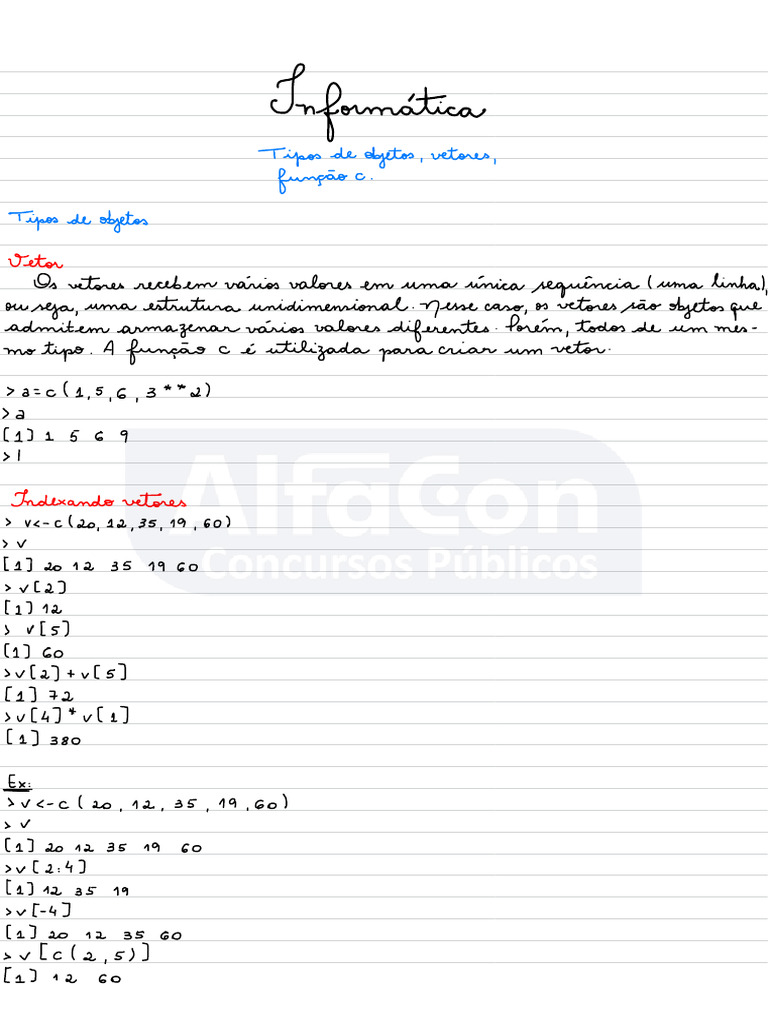 Informática
Tipos de objetos, vetores,
função c.
Tipos de objetos
Vetor
Os vetores recebem vários valores em uma única sequência (uma linha),
ou seja, uma estrutura unidimensional. Nesse caso, os vetores são objetos que
admitem armazenar vários valores diferentes. Porém, todos de um mes-
mo tipo. A função c é utilizada para criar um vetor.
> a=c(1,5,6,3**2)
>a
[1] 1 5 6 9
>|
AlfaCon
Concursos Públicos
Indexando vetores
> v<-c(20,12,35,19,60)
>v
[1] 20 12 35 19 60
>v[2]
[1] 12
> v[5]
[1] 60
>v[2]+v[5]
[1] 72
>v[4]*v[1]
[1] 380
Ex:
>v<-c(20,12,35,19,60)
>v
[1] 20 12 35 19 60
>v[2:4]
[1] 12 35 19
>v[-4]
[1] 20 12 35 60
>v[c(2,5)]
[1] 12 60